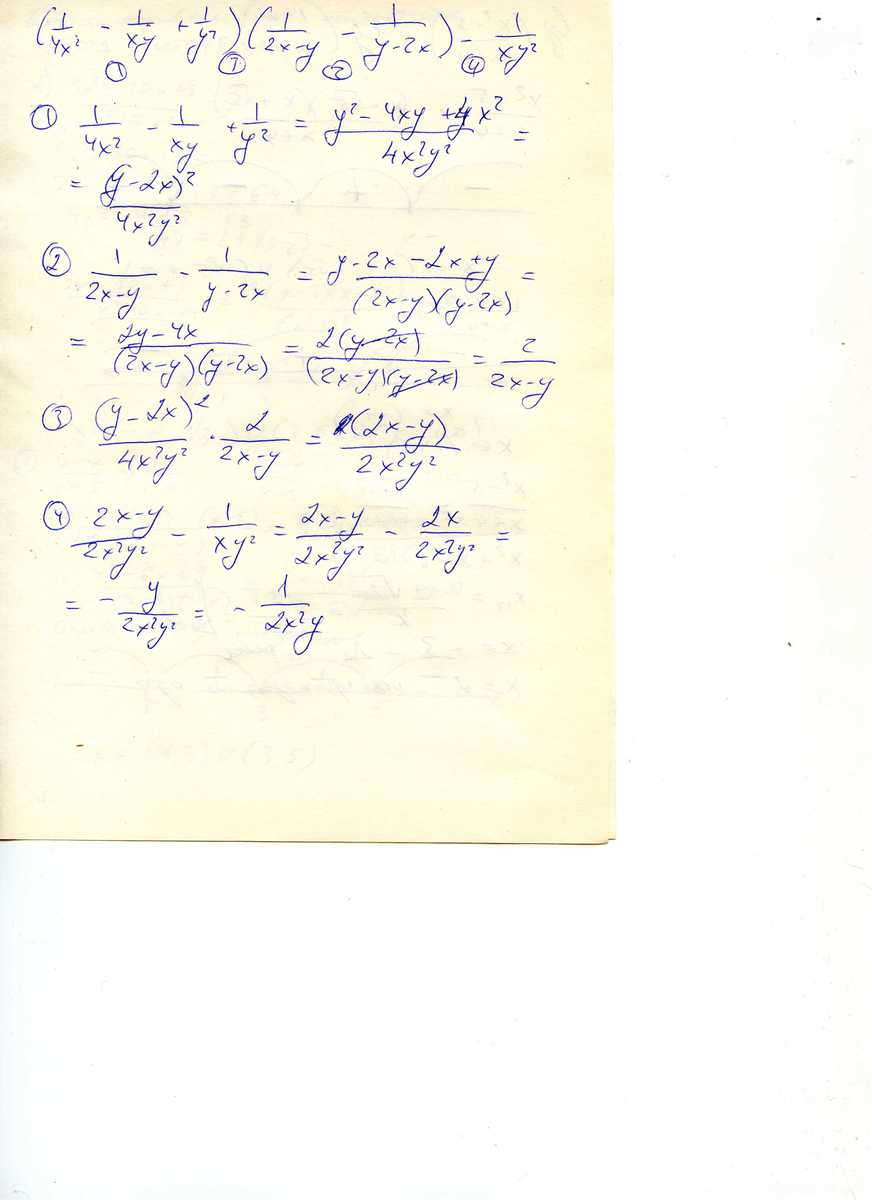 (1/4x² - 1/xy + 1/y²)(1/2x-y - 1/y-2x) - 1/xy²
① ③ ② ④
① 1/4x² - 1/xy + 1/y² = y² - 4xy + 4x²/4x²y² =
= (y-2x)²/4x²y²
② 1/2x-y - 1/y-2x = y-2x-2x+y/(2x-y)(y-2x) =
= 2y-4x/(2x-y)(y-2x) = 2(y-2x)/(2x-y)(y-2x) = 2/2x-y
③ (y-2x)²/4x²y² · 2/2x-y = (2x-y)/2x²y²
④ 2x-y/2x²y² - 1/xy² = 2x-y/2x²y² - 2x/2x²y² =
= - y/2x²y² = - 1/2x²y